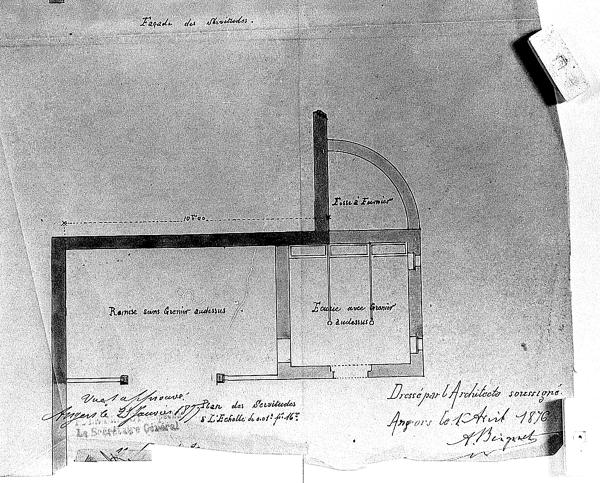 Façade des Servitudes.
Fosse à Fumier
10m00
Remise sans Grenier audessus
Ecurie avec Grenier
audessus
Vu et approuvé.
Angers le
Le Secrétaire Général
Plan des Servitudes
à L'Echelle de 0.01c pr 1m.
Dressé par l'Architecte soussigné.
Angers le 1er Avril 1876